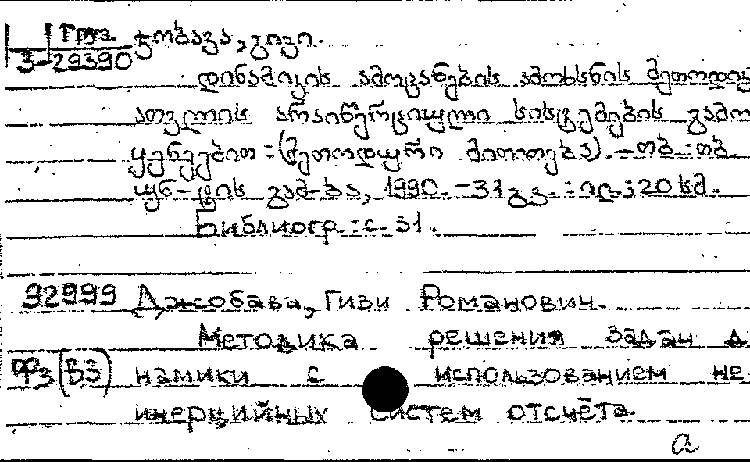 Груз. ჯობავა, გივი.
3-29390
დინამიკის ამოცანების ამოხსნის მეთოდიკ
ათვლის არაინერციული სისტემების გამო
ყენებით : (მეთოდური მითითება). – თბ. : თბ
უნ-ტის გამ-ბა, 1990. – 31 გვ. : ილ. ; 20 სმ.
Библиогр.: с. 31.
92999 Джобава, Гиви Романович.
Методика решения задач д
Фз (В3) намики с использованием не
инерцийных систем отсчёта.
а